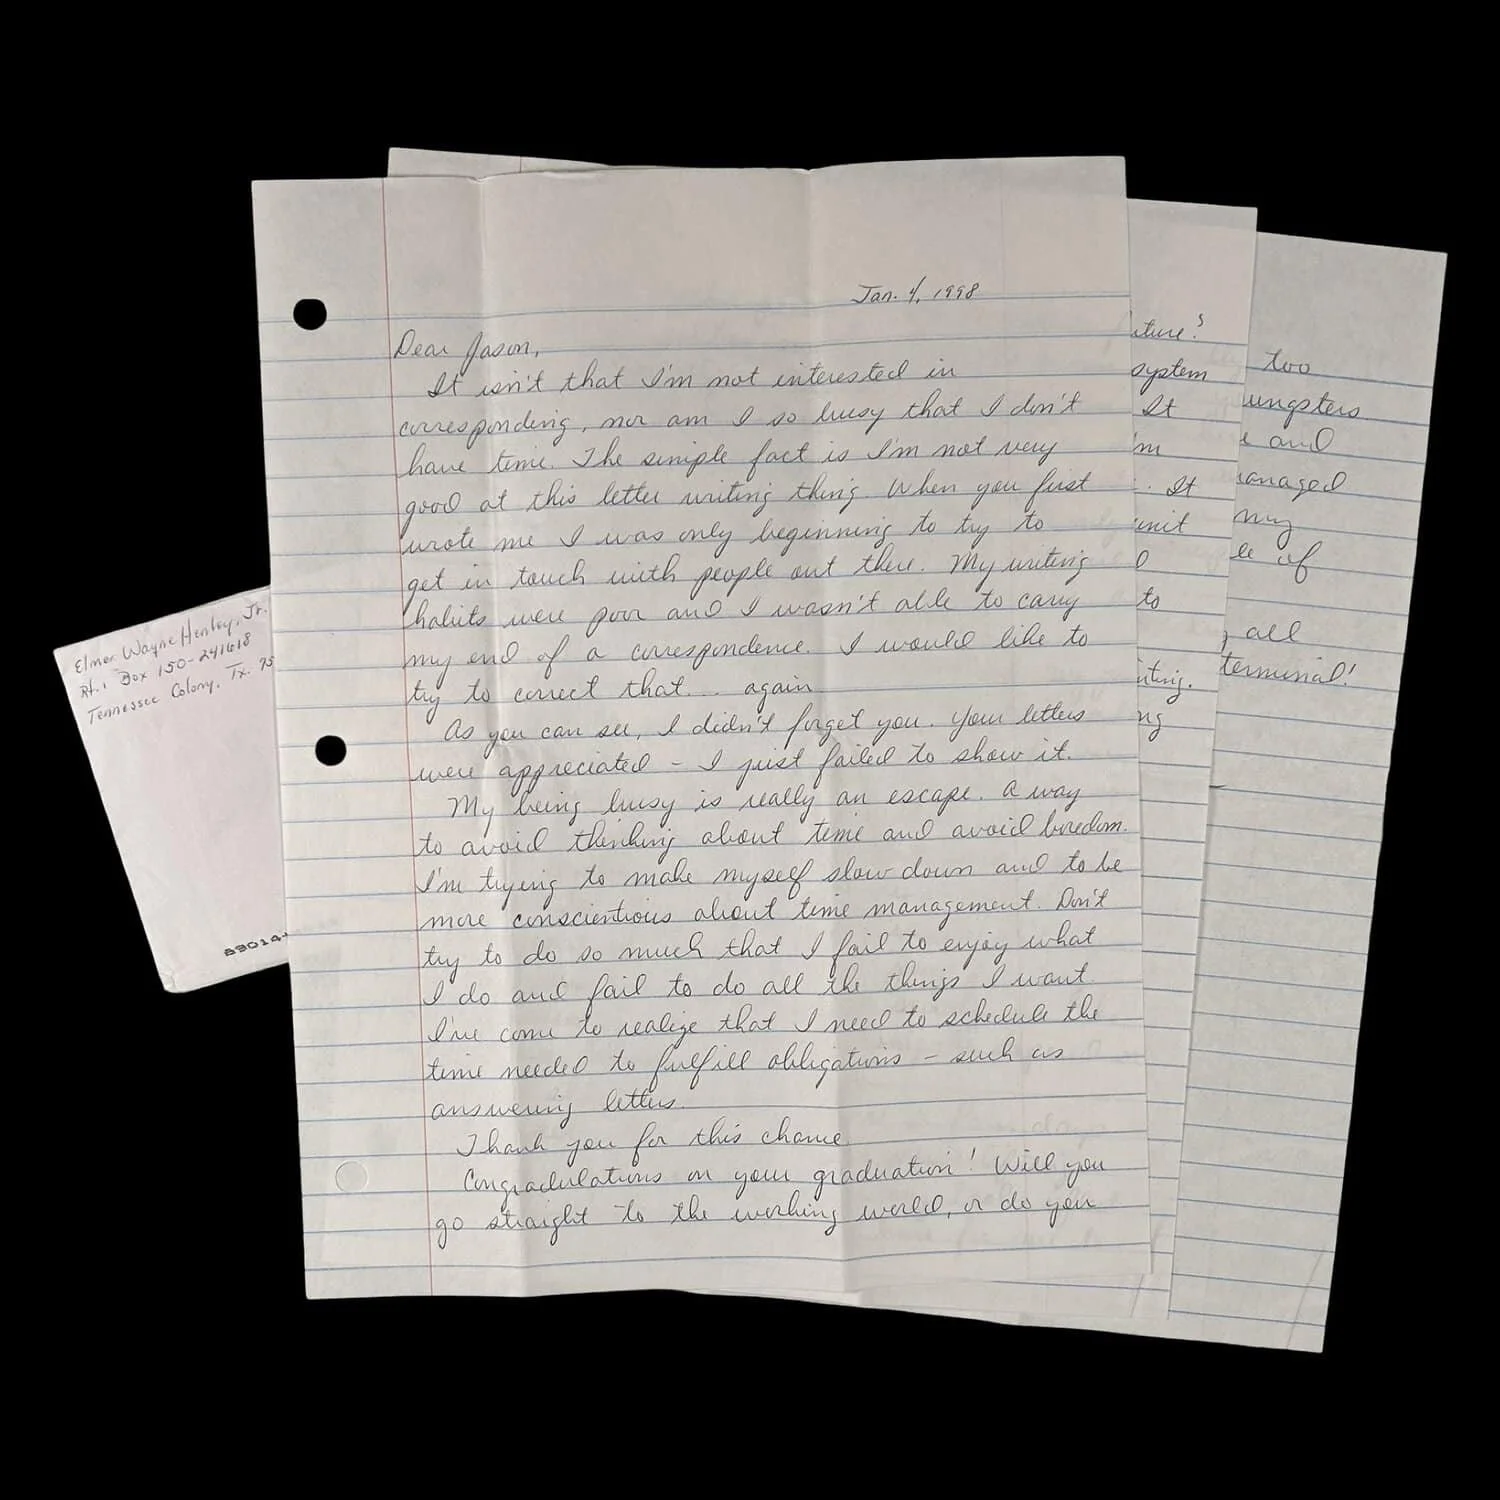 Jan. 4, 1998
Dear Jason,
It isn't that I'm not interested in
corresponding, nor am I so busy that I don't
have time. The simple fact is I'm not very
good at this letter writing thing. When you first
wrote me I was only beginning to try to
get in touch with people out there. My writing
habits were poor and I wasn't able to carry
my end of a correspondence. I would like to
try to correct that... again
As you can see, I didn't forget you. Your letters
were appreciated – I just failed to show it.
My being busy is really an escape. A way
to avoid thinking about time and avoid boredom.
I'm trying to make myself slow down and to be
more conscientious about time management. Don't
try to do so much that I fail to enjoy what
I do and fail to do all the things I want.
I've come to realize that I need to schedule the
time needed to fulfill obligations – such as
answering letters.
Thank you for this chance.
Congradulations on your graduation! Will you
go straight to the working world, or do you
Elmer Wayne Henley, Jr.
Rt. 1 Box 150-241618
Tennessee Colony, Tx. 75
89014
uture?
system
It
'm
. It
unit
to
iting.
ng
too
ungsters
e and
anaged
my
le of
, all
terminal!